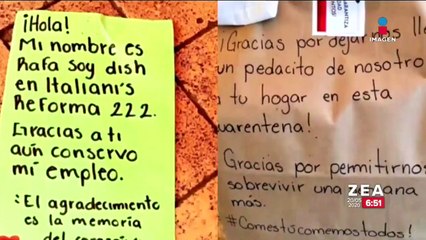 ¡Hola!
Mi nombre es
Rafa soy dish
en Italiani's
Reforma 222.
Gracias a ti
aún conservo
mi empleo.
El agradecimiento
es la memoria
del
¡Gracias por
un pedacito de nosotro
a tu hogar en esta
uarentena!
Gracias por permitirnos
sobrevivir una ana
más.
#Comestúcomemostodos!
IMAGEN
ZEA
20/05
2020
6:51